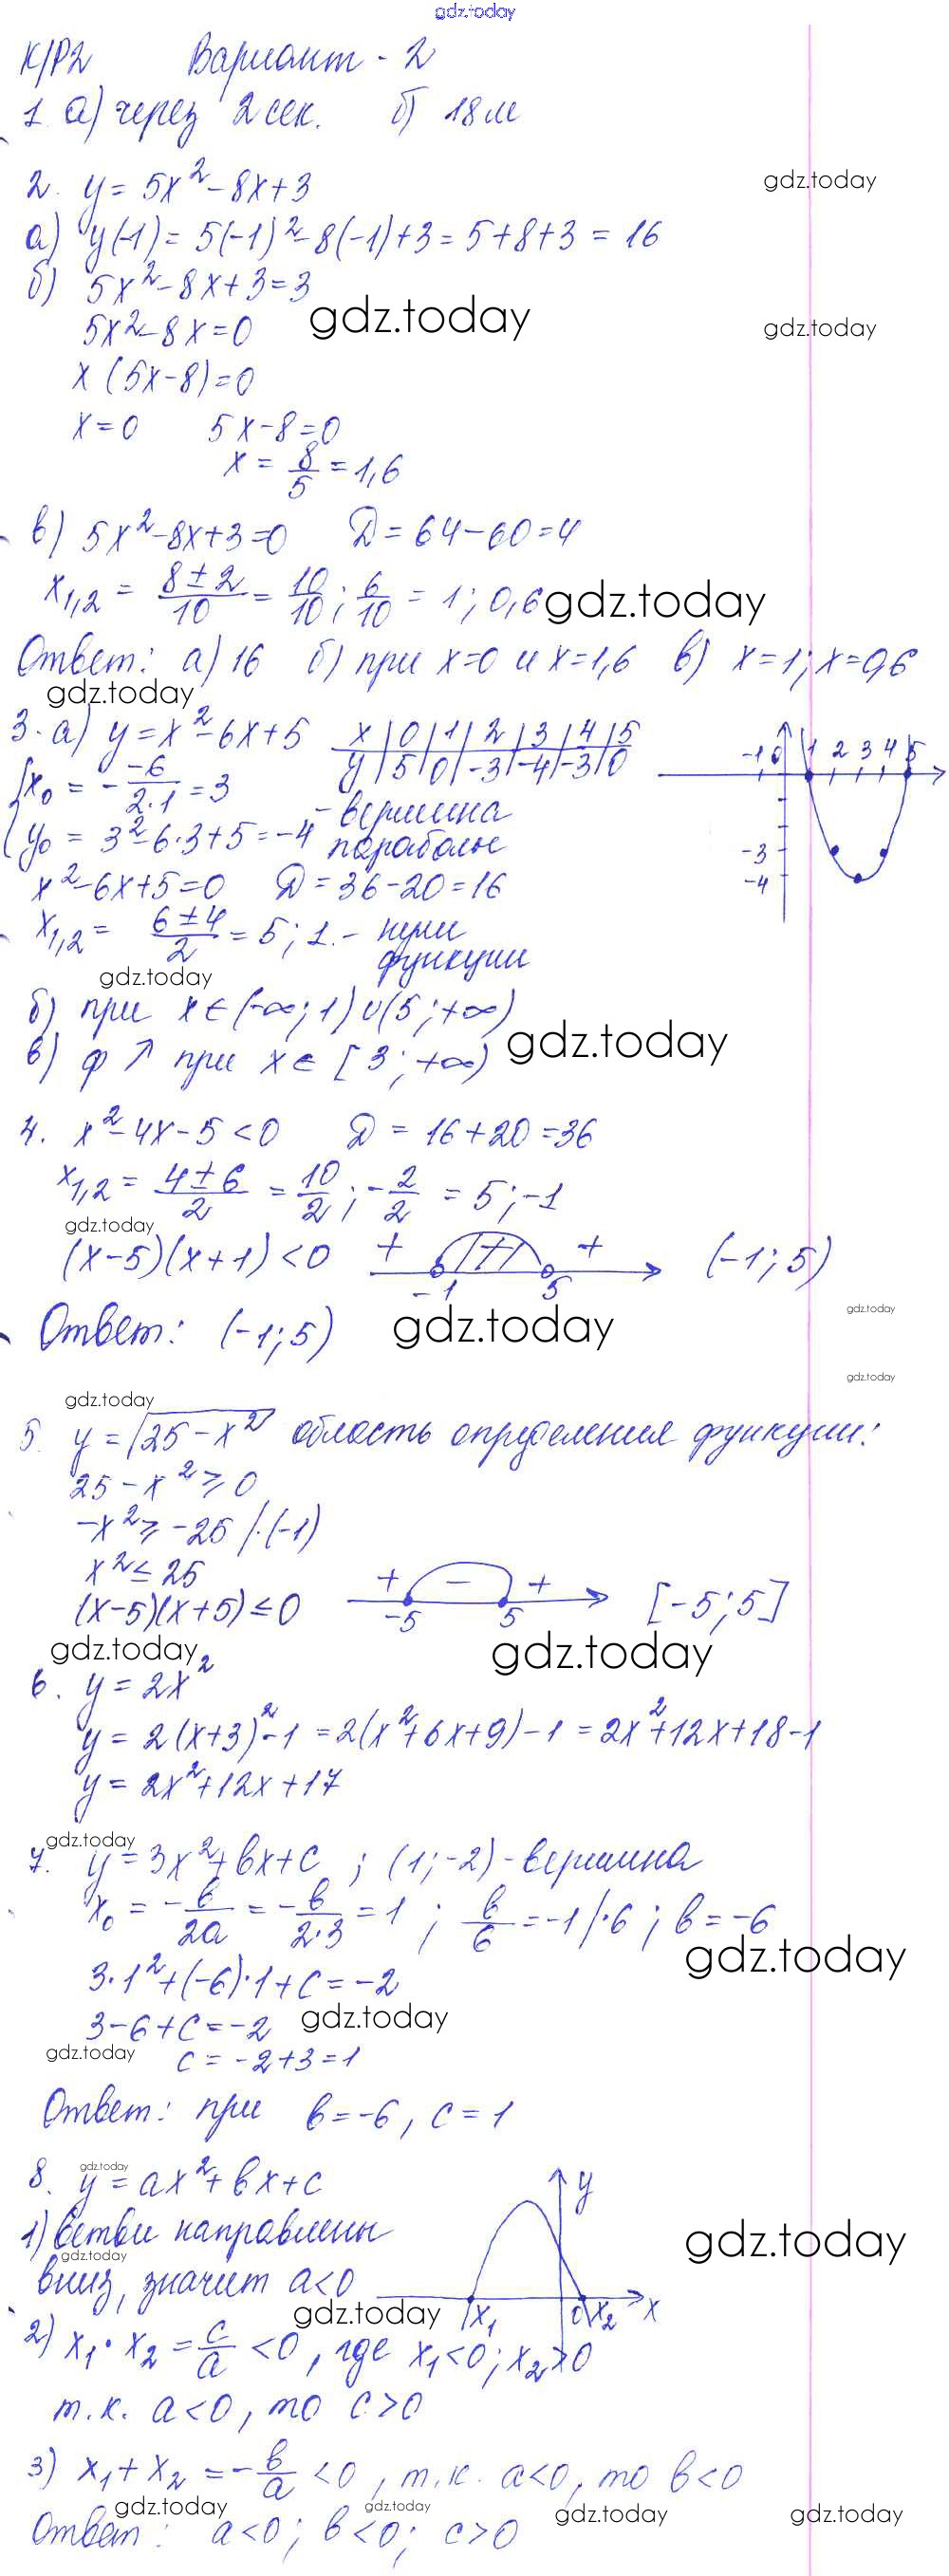 gdz.today
К/Р2 Вариант - 2
1. а) через 2 сек. б) 18 м
2. y = 5x² - 8x + 3
gdz.today
а) y(-1) = 5(-1)² - 8(-1) + 3 = 5 + 8 + 3 = 16
б) 5x² - 8x + 3 = 3
gdz.today
5x² - 8x = 0
gdz.today
x (5x - 8) = 0
x = 0 5x - 8 = 0
x = 8/5 = 1,6
в) 5x² - 8x + 3 = 0 Д = 64 - 60 = 4
x₁,₂ = (8 ± 2)/10 = 10/10 ; 6/10 = 1 ; 0,6
gdz.today
Ответ: а) 16 б) при x = 0 и x = 1,6 в) x = 1; x = 0,6
gdz.today
3. а) y = x² - 6x + 5
x | 0 | 1 | 2 | 3 | 4 | 5
y | 5 | 0 | -3 | -4 | -3 | 0
-1 0 1 2 3 4 5
-3
-4
{x₀ = - -6/(2·1) = 3
y₀ = 3² - 6·3 + 5 = -4 - вершина
параболы
x² - 6x + 5 = 0 Д = 36 - 20 = 16
x₁,₂ = (6 ± 4)/2 = 5 ; 1. - нули
функции
gdz.today
б) при x ∈ (-∞; 1) ∪ (5; +∞)
gdz.today
в) ф ↗ при x ∈ [3; +∞)
4. x² - 4x - 5 < 0 Д = 16 + 20 = 36
x₁,₂ = (4 ± 6)/2 = 10/2 ; -2/2 = 5 ; -1
gdz.today
(x - 5)(x + 1) < 0 + + (-1; 5)
-1 5
gdz.today
Ответ: (-1; 5)
gdz.today
gdz.today
gdz.today
5. y = √(25 - x²) область определения функции:
25 - x² ≥ 0
-x² ≥ -25 /·(-1)
x² ≤ 25
(x - 5)(x + 5) ≤ 0 + - + [-5; 5]
-5 5
gdz.today
gdz.today
6. y = 2x²
y = 2(x + 3)² - 1 = 2(x² + 6x + 9) - 1 = 2x² + 12x + 18 - 1
y = 2x² + 12x + 17
gdz.today
7. y = 3x² + вx + c ; (1; -2) - вершина
x₀ = - в/2a = - в/(2·3) = 1 ; в/6 = -1 /·6 ; в = -6
gdz.today
3·1² + (-6)·1 + c = -2
3 - 6 + c = -2
gdz.today
gdz.today
c = -2 + 3 = 1
Ответ: при в = -6, c = 1
gdz.today
8. y = ax² + вx + c
y
1) ветви направлены
gdz.today
gdz.today
вниз, значит a < 0
x₁ 0 x₂ x
gdz.today
2) x₁ · x₂ = c/a < 0, где x₁ < 0; x₂ > 0
т.к. a < 0, то c > 0
3) x₁ + x₂ = - в/a < 0, т.к. a < 0, то в < 0
gdz.today
gdz.today
gdz.today
gdz.today
Ответ: a < 0; в < 0; c > 0